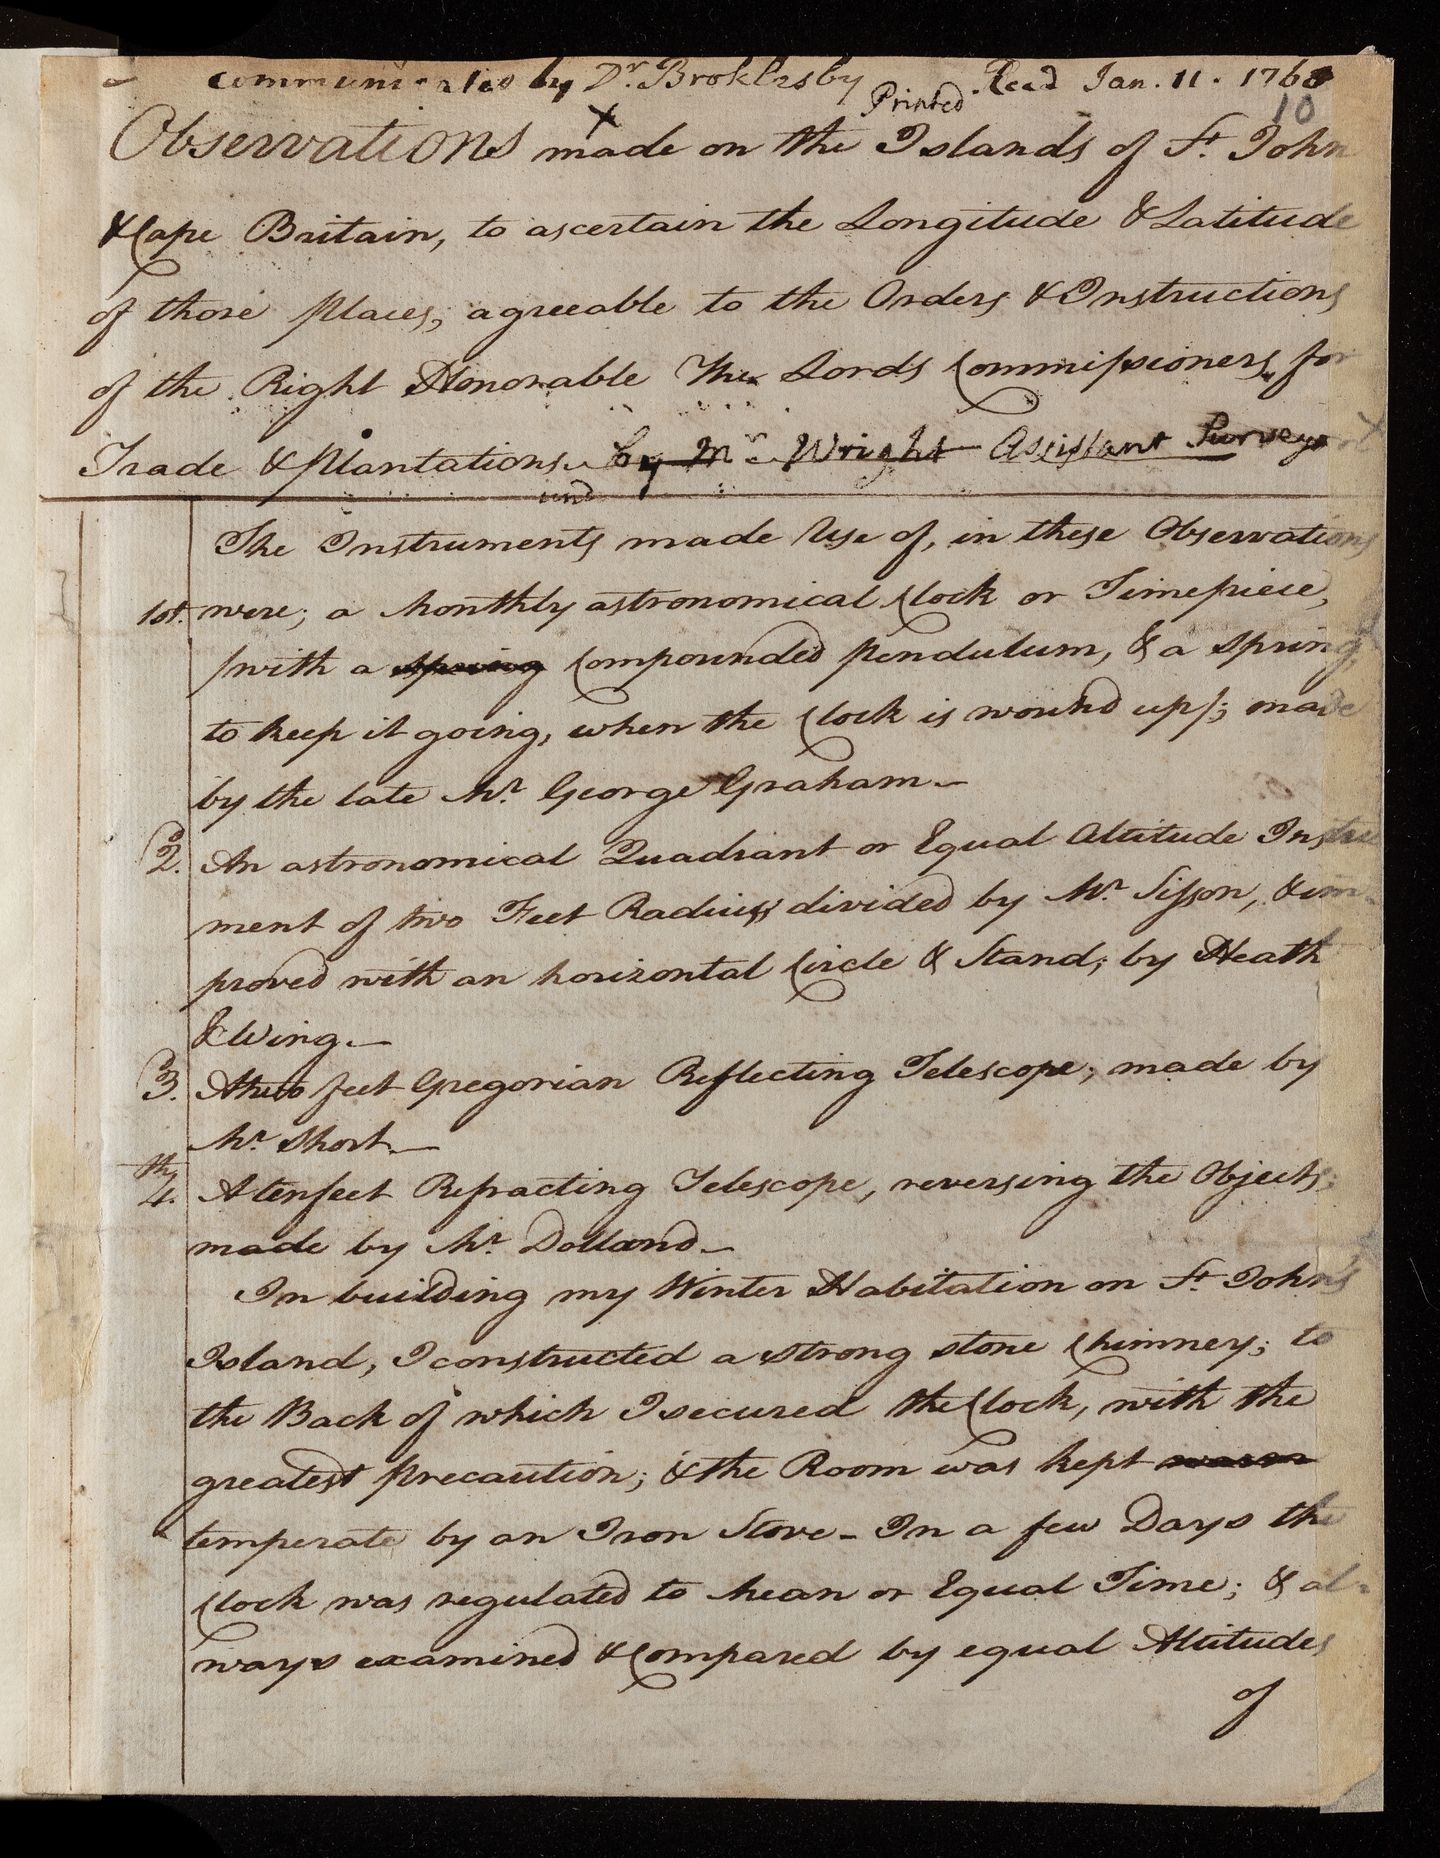 Communicated by Dr. Broklesby Read Jan. 11. 1768
Printed 10
Observations made on the Islands of St. John
& Cape Britain, to ascertain the Longitude & Latitude
of those places, agreeable to the Orders & Instructions
of the Right Honorable The Lords Commissioners for
Trade & Plantations. by Mr. Wright Assistant Surveyor
and
The Instruments made Use of, in these Observations
1st. were; a Monthly astronomical Clock or Timepiece,
/with a spring Compounded Pendulum, & a Spring,
to keep it going, when the Clock is wound up/; made
by the late Mr. George Graham.—
2d. An astronomical Quadrant or Equal Altitude Instru
ment of two Feet Radius divided by Mr. Sisson, & im-
proved with an horizontal Circle & Stand; by Heath
& Wing.—
3d. A two feet Gregorian Reflecting Telescope; made by
Mr. Short.—
4th. A ten feet Refracting Telescope, reversing the Objects;
made by Mr. Dolland—
In building my Winter Habitation on St. John's
Island, I constructed a strong stone Chimney; to
the Back of which I secured the Clock, with the
greatest Precaution; & the Room was kept warm
temperate by an Iron Stove— In a few Days the
Clock was regulated to Mean or Equal Time; & al-
ways examined & Compared by equal Altitudes
of